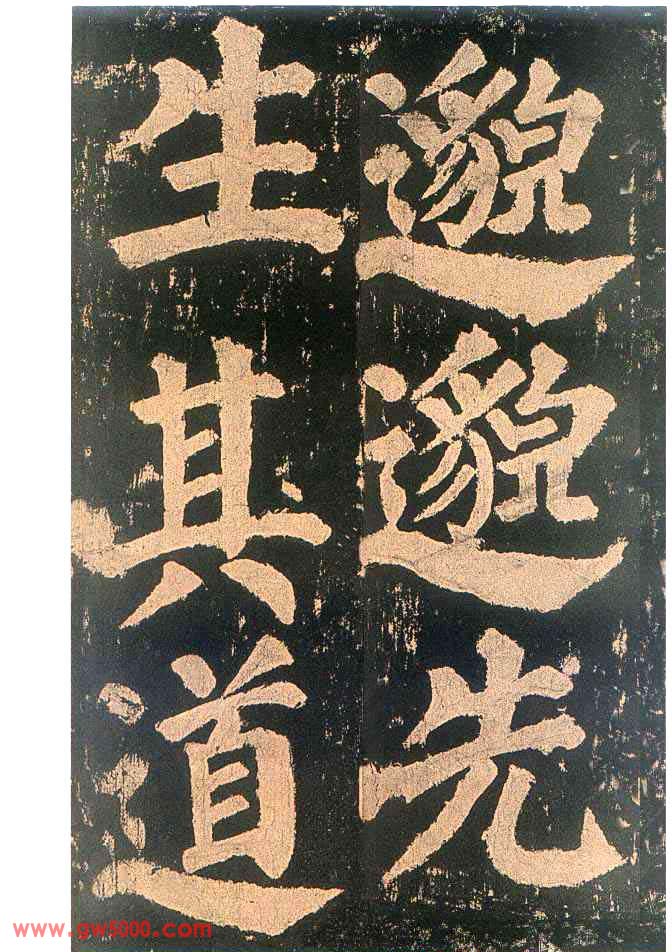 邈邈先
生其道
www.gw5000.com